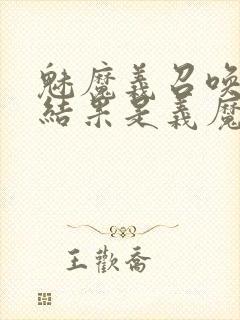 魅魔義召喚
結果是義魔
王歡喬